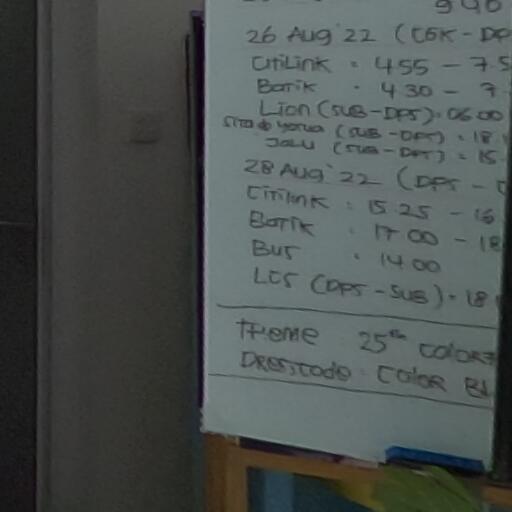 940
26 Aug '22 (CGK - DP
Citilink : 455 - 7.5
Batik : 430 - 7
Lion (SUB - DPS) : 06.00
(SUB - DPS) = 18
(SUB - DPS) = 15
28 Aug '22 (DPS -
Citilink : 15.25 - 16
Batik : 17 00 - 18
Bus : 14 00
LCS (DPS - SUB) : 18
Theme 25th COLOR
Dresscode : COLOR BL